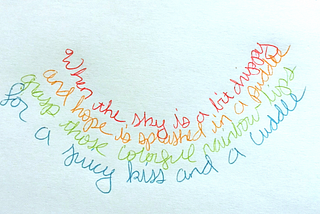 When the sky is a bit drippy
and hope is splashed in a puddle
grasp those colorful rainbow lips
for a juicy kiss and a cuddle